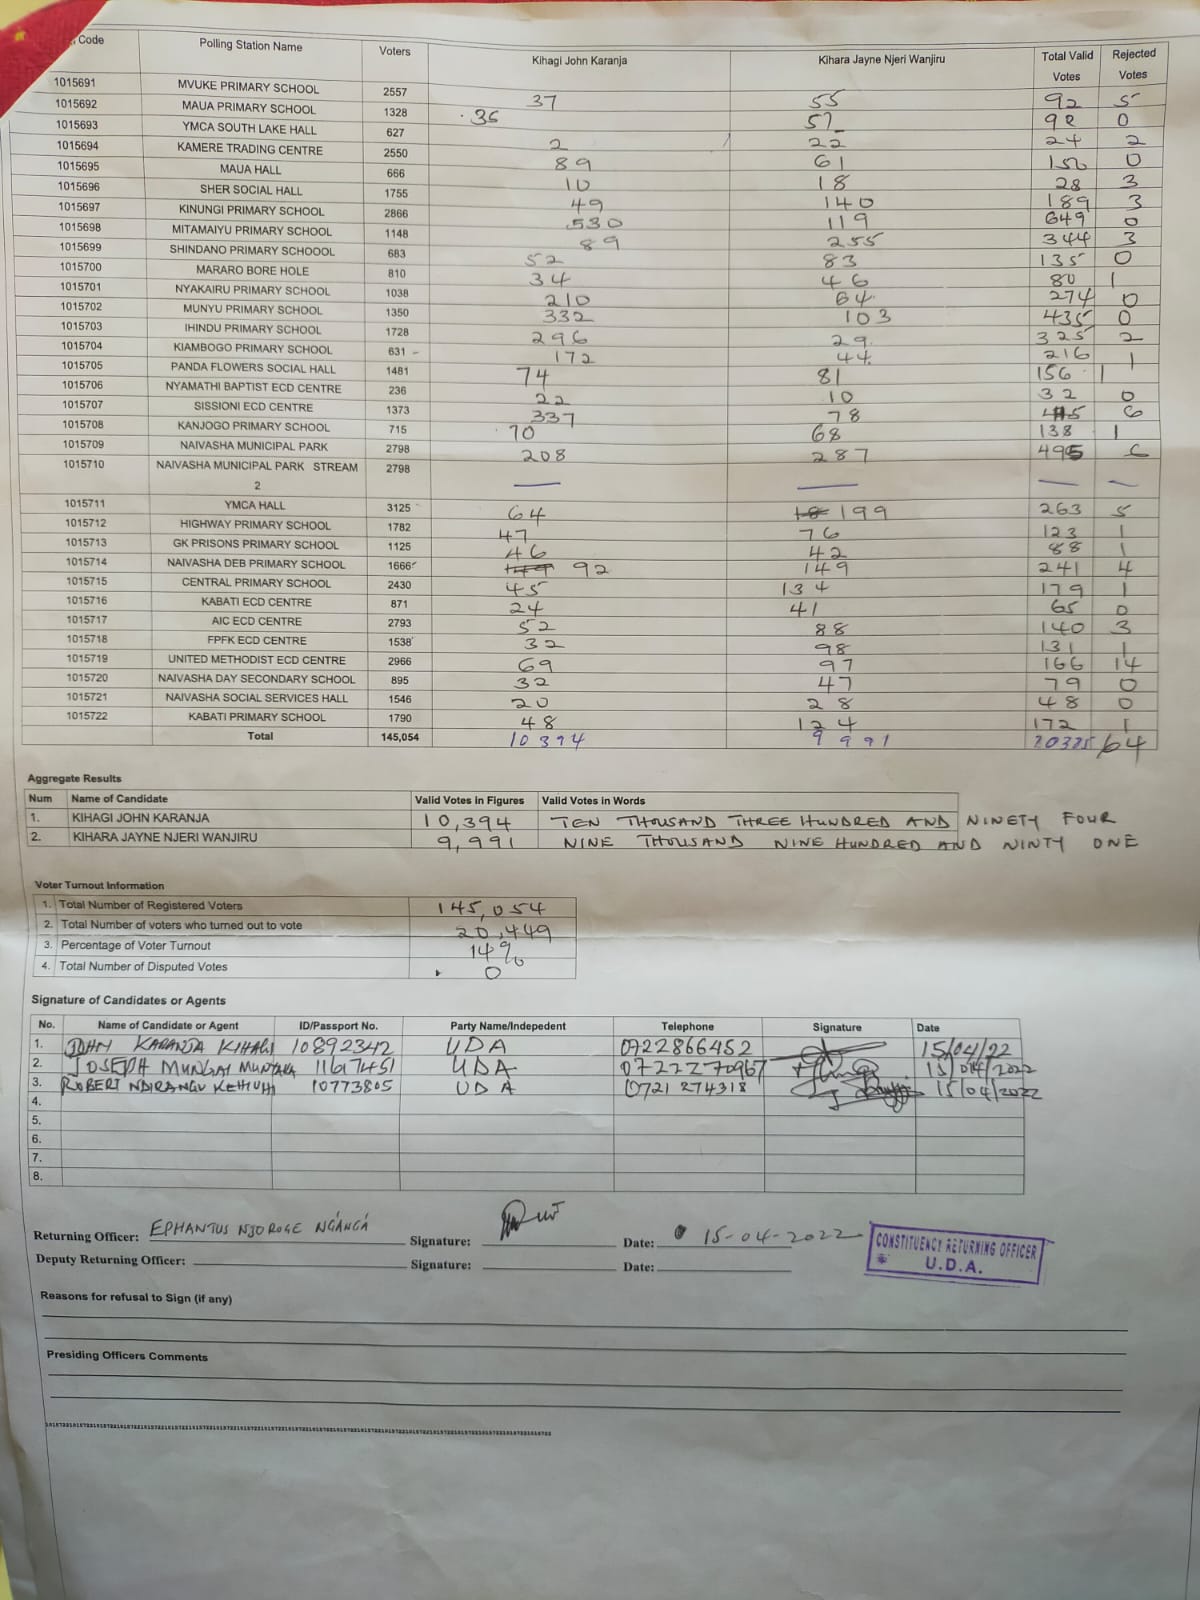 Code Polling Station Name Voters Kihagi John Karanja Kihara Jayne Njeri Wanjiru Total Valid Votes Rejected Votes
1015691 MVUKE PRIMARY SCHOOL 2557 37 55 92 5
1015692 MAUA PRIMARY SCHOOL 1328 35 57 92 0
1015693 YMCA SOUTH LAKE HALL 627 2 22 24 2
1015694 KAMERE TRADING CENTRE 2550 89 61 150 0
1015695 MAUA HALL 666 10 18 28 3
1015696 SHER SOCIAL HALL 1755 49 140 189 3
1015697 KINUNGI PRIMARY SCHOOL 2866 530 119 649 0
1015698 MITAMAIYU PRIMARY SCHOOL 1148 89 255 344 3
1015699 SHINDANO PRIMARY SCHOOOL 683 52 83 135 0
1015700 MARARO BORE HOLE 810 34 46 80 1
1015701 NYAKAIRU PRIMARY SCHOOL 1038 210 64 274 0
1015702 MUNYU PRIMARY SCHOOL 1350 332 103 435 0
1015703 IHINDU PRIMARY SCHOOL 1728 296 29 325 2
1015704 KIAMBOGO PRIMARY SCHOOL 631 172 44 216 1
1015705 PANDA FLOWERS SOCIAL HALL 1481 74 81 156 1
1015706 NYAMATHI BAPTIST ECD CENTRE 236 22 10 32 0
1015707 SISSIONI ECD CENTRE 1373 337 78 415 6
1015708 KANJOGO PRIMARY SCHOOL 715 70 68 138 1
1015709 NAIVASHA MUNICIPAL PARK 2798 208 287 495 6
1015710 NAIVASHA MUNICIPAL PARK STREAM 2 2798 — — — —
1015711 YMCA HALL 3125 64 199 263 5
1015712 HIGHWAY PRIMARY SCHOOL 1782 47 76 123 1
1015713 GK PRISONS PRIMARY SCHOOL 1125 46 42 88 1
1015714 NAIVASHA DEB PRIMARY SCHOOL 1666 149 92 149 241 4
1015715 CENTRAL PRIMARY SCHOOL 2430 45 134 179 1
1015716 KABATI ECD CENTRE 871 24 41 65 0
1015717 AIC ECD CENTRE 2793 52 88 140 3
1015718 FPFK ECD CENTRE 1538 32 98 131 1
1015719 UNITED METHODIST ECD CENTRE 2966 69 97 166 14
1015720 NAIVASHA DAY SECONDARY SCHOOL 895 32 47 79 0
1015721 NAIVASHA SOCIAL SERVICES HALL 1546 20 28 48 0
1015722 KABATI PRIMARY SCHOOL 1790 48 124 172 1
Total 145,054 10394 9991 20385 64
Aggregate Results
Num Name of Candidate Valid Votes in Figures Valid Votes in Words
1. KIHAGI JOHN KARANJA 10,394 TEN THOUSAND THREE HUNDRED AND NINETY FOUR
2. KIHARA JAYNE NJERI WANJIRU 9,991 NINE THOUSAND NINE HUNDRED AND NINTY ONE
Voter Turnout Information
1. Total Number of Registered Voters 145,054
2. Total Number of voters who turned out to vote 20,449
3. Percentage of Voter Turnout 14%
4. Total Number of Disputed Votes 0
Signature of Candidates or Agents
No. Name of Candidate or Agent ID/Passport No. Party Name/Indepedent Telephone Signature Date
1. JOHN KARANJA KIHAGI 10892342 UDA 0722866452 15/04/22
2. JOSEPH MUNGAI 11617451 UDA 0722270967 15/04/2022
3. ROBERT NDIRANGU 10773805 UDA 0721 274318 15/04/2022
4.
5.
6.
7.
8.
Returning Officer: EPHANTUS NJOROGE NG'ANG'A Signature: Date: 15-04-2022
CONSTITUENCY RETURNING OFFICER
U.D.A.
Deputy Returning Officer: Signature: Date:
Reasons for refusal to Sign (if any)
Presiding Officers Comments